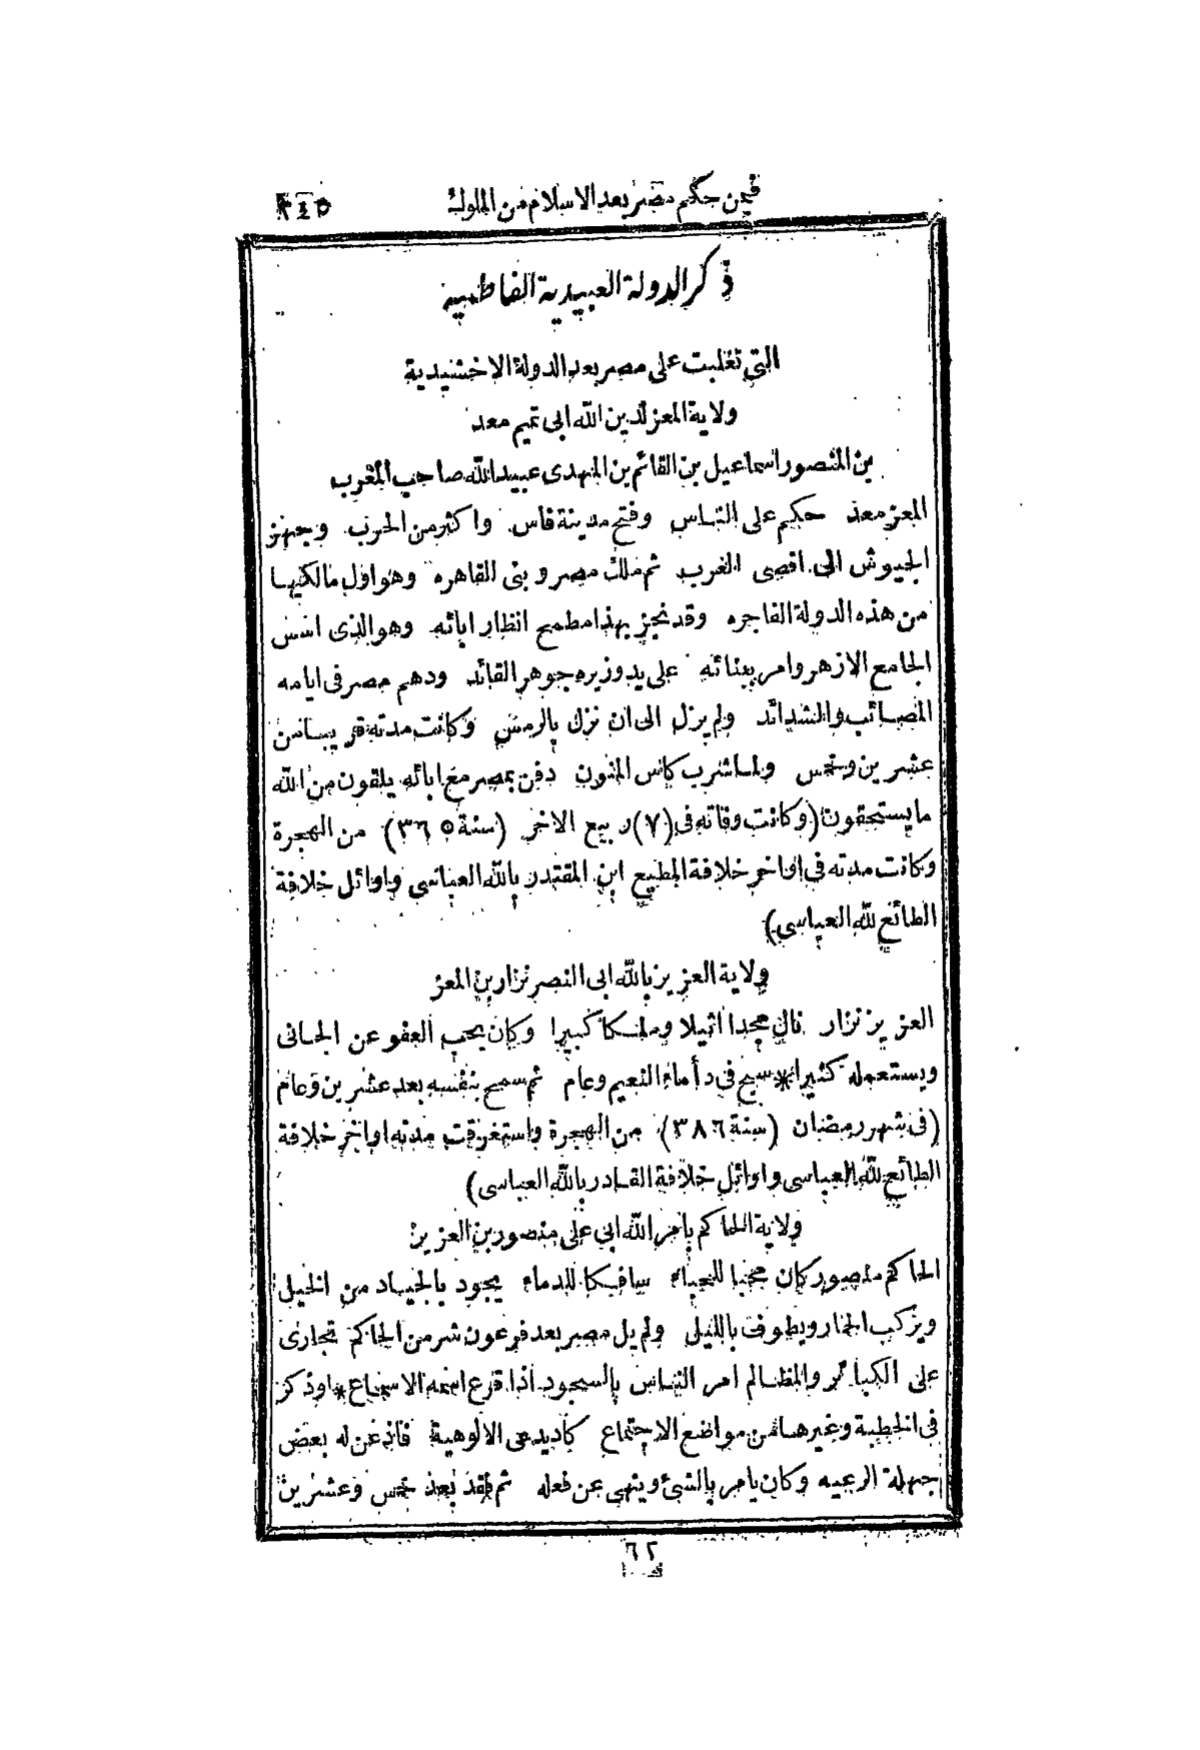 فيمن حكم مصر بعد الاسلام من الملوك ٢٤٥
ذكر الدولة العبيدية الفاطمية
التى تغلبت على مصر بعد الدولة الاخشيدية
ولاية المعز لدين الله ابى تميم معد
بن المنصور اسماعيل بن القائم بن المهدى عبيد الله صاحب المغرب
المعز معد حكم على الناس وفتح مدينة فاس واكثر من الحرب وجهز
الجيوش الى اقصى الغرب ثم ملك مصر وبنى القاهره وهو اول مالكيها
من هذه الدولة الفاجره وقد نجز بهذا مطمح انظار ابائه وهو الذى اسس
الجامع الازهر وامر ببنائه على يد وزيره جوهر القائد ودهم مصر فى ايامه
المصائب والشدائد ولم يزل الى ان نزل بالرمس وكانت مدته قريبا من
عشرين وخمس ولما شرب كاس المنون دفن بمصر مع ابائه يلقون من الله
ما يستحقون (وكانت وفاته فى (٧) ربيع الاخر (سنة ٣٦٥) من الهجرة
وكانت مدته فى اواخر خلافة المطيع ابن المقتدر بالله العباسى واوائل خلافة
الطائع لله العباسى)
ولاية العزيز بالله ابى النصر نزار بن المعز
العزيز نزار نال مجدا اثيلا وملكا كبيرا وكان يحب العفو عن الجانى
ويستعمله كثيرا * سبح فى دأماء النعيم وعام ثم سمح بنفسه بعد عشرين وعام
(فى شهر رمضان (سنة ٣٨٦) من الهجرة واستغرقت مدته اواخر خلافة
الطائع لله العباسى واوائل خلافة القادر بالله العباسى)
ولاية الحاكم بامر الله ابى على منصور بن العزيز
الحاكم منصور كان مجنبا للحياء سافكا للدماء يجود بالجياد من الخيل
ويركب الحمار ويطوف بالليل ولم يل مصر بعد فرعون شر من الحاكم تجارى
على الكبائر والمظالم امر الناس بالسجود اذا قرع اسمه الاسماع * وذكر
فى الخطبة وغيرها من مواضع الاجتماع كاد يدعى الالوهية فاذعن له بعض
جهلة الرعيه وكان يامر بالشئ وينهى عن فعله ثم فقد بعد خمس وعشرين
٦٢